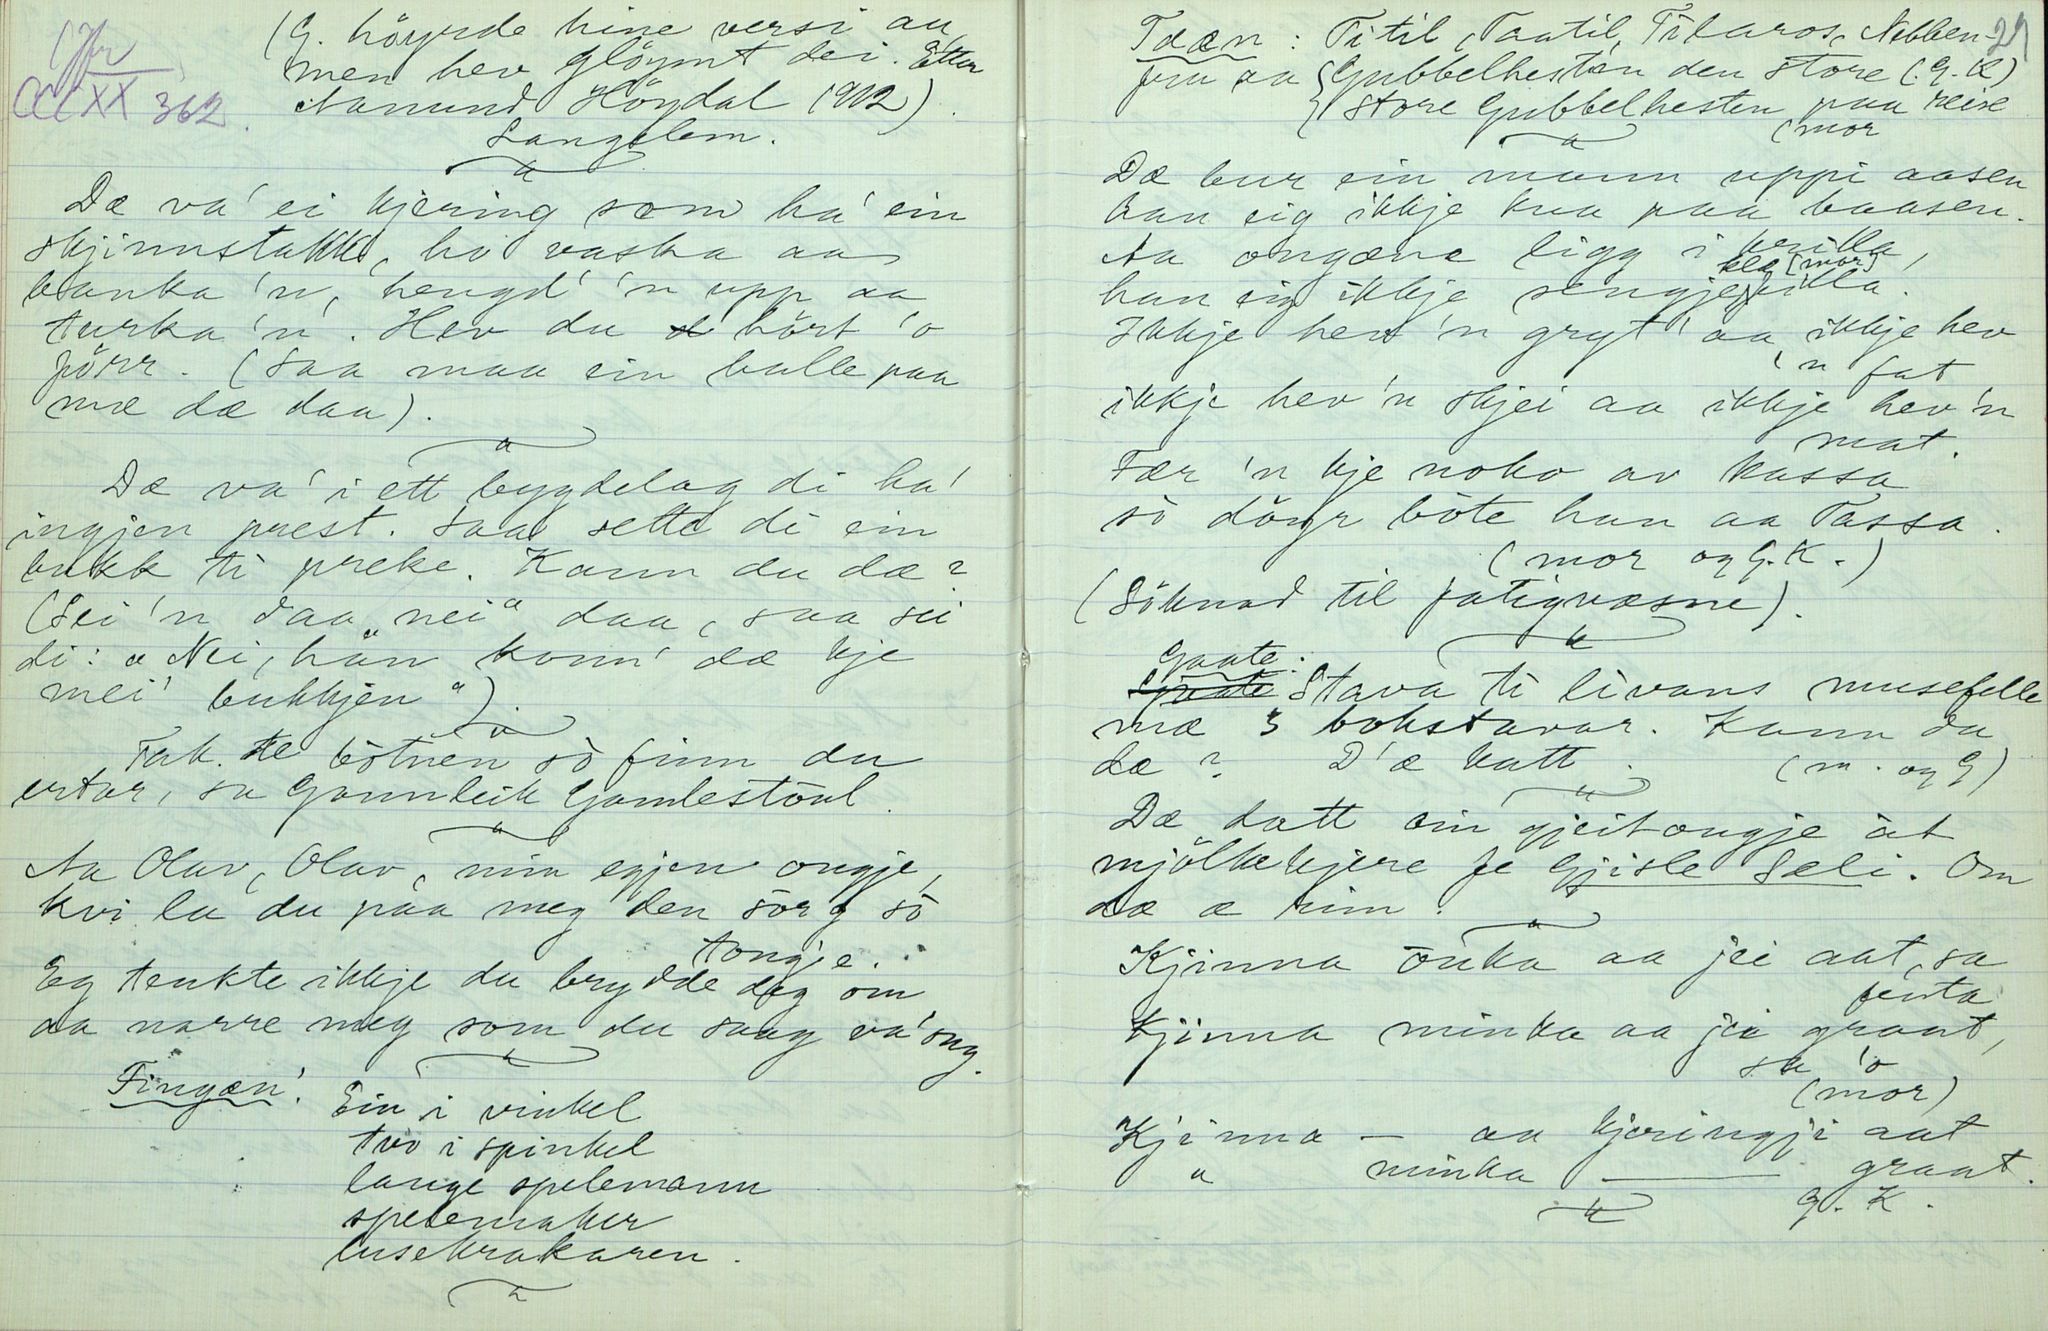 (Jfr
CCCXX 362.
(G. höyrde hine versi au,
men hev glöymt dei. Etter
Aanund Höydal 1902).
Langslem.
Dæ va' ei kjering som ha' ein
skjinnstakk, ho vaska aa
banka 'n, hengd' 'n upp aa
turka 'n. Hev du hört 'o
förr. (Saa maa ein balle paa
mæ dæ daa).
Dæ va' i ett bygdelag di ha'
ingjen prest. Saa sette di ein
bukk ti preke. Kann du dæ?
(Sei 'n daa "nei" daa, saa sei
di: "Nei, han konn' dæ kje
mei' bukkjen").
Tak te bötnen so finn du
ertar, sa Gunnleik Gamlestöul.
Aa Olav, Olav, min egjen ongje,
kvi la du paa meg den sorg so
tongje.
Eg tenkte ikkje du brydde deg om
aa narre meg som du saag va' ong.
Fingæn:
Ein i vinkel
tvo i spinkel
lange spelemann
spelemaker
lusekrakaren.
29
Tææn: Titil, Taatil, Tilaros, Nebben-
fru aa Gubbelhestan den store (G. K)
Store Gubbelhesten paa reise
(mor
Dæ bur ein mann uppi aasen
han eig ikkje kua paa baasen.
Aa ongæne ligg i krilla,
klæ (mor)
han eig ikkje sengjefilla.
Ikkje hev 'n gryt' aa ikkje hev
'n fat
ikkje hev 'n skjei aa ikkje hev 'n
mat.
Fær 'n kje noko av kassa
so döyr böte han aa Tassa.
(mor og G. K.)
(Söknad til fatigvæsne).
Gaate:
Stava ti livans musefelle
mæ 3 bokstavar. Kann du
dæ? D'æ katt. (m. og G)
Dæ datt ein gjeitongje åt
mjölkekjere fe Gjisle Sæli. Om
dæ æ rim.
Kjinna öuka aa jei aat, sa
jenta
Kjinna minka aa jei graat,
sa 'o
(mor)
Kjinna — aa kjeringji aat
" minka ——— graat.
G. K.